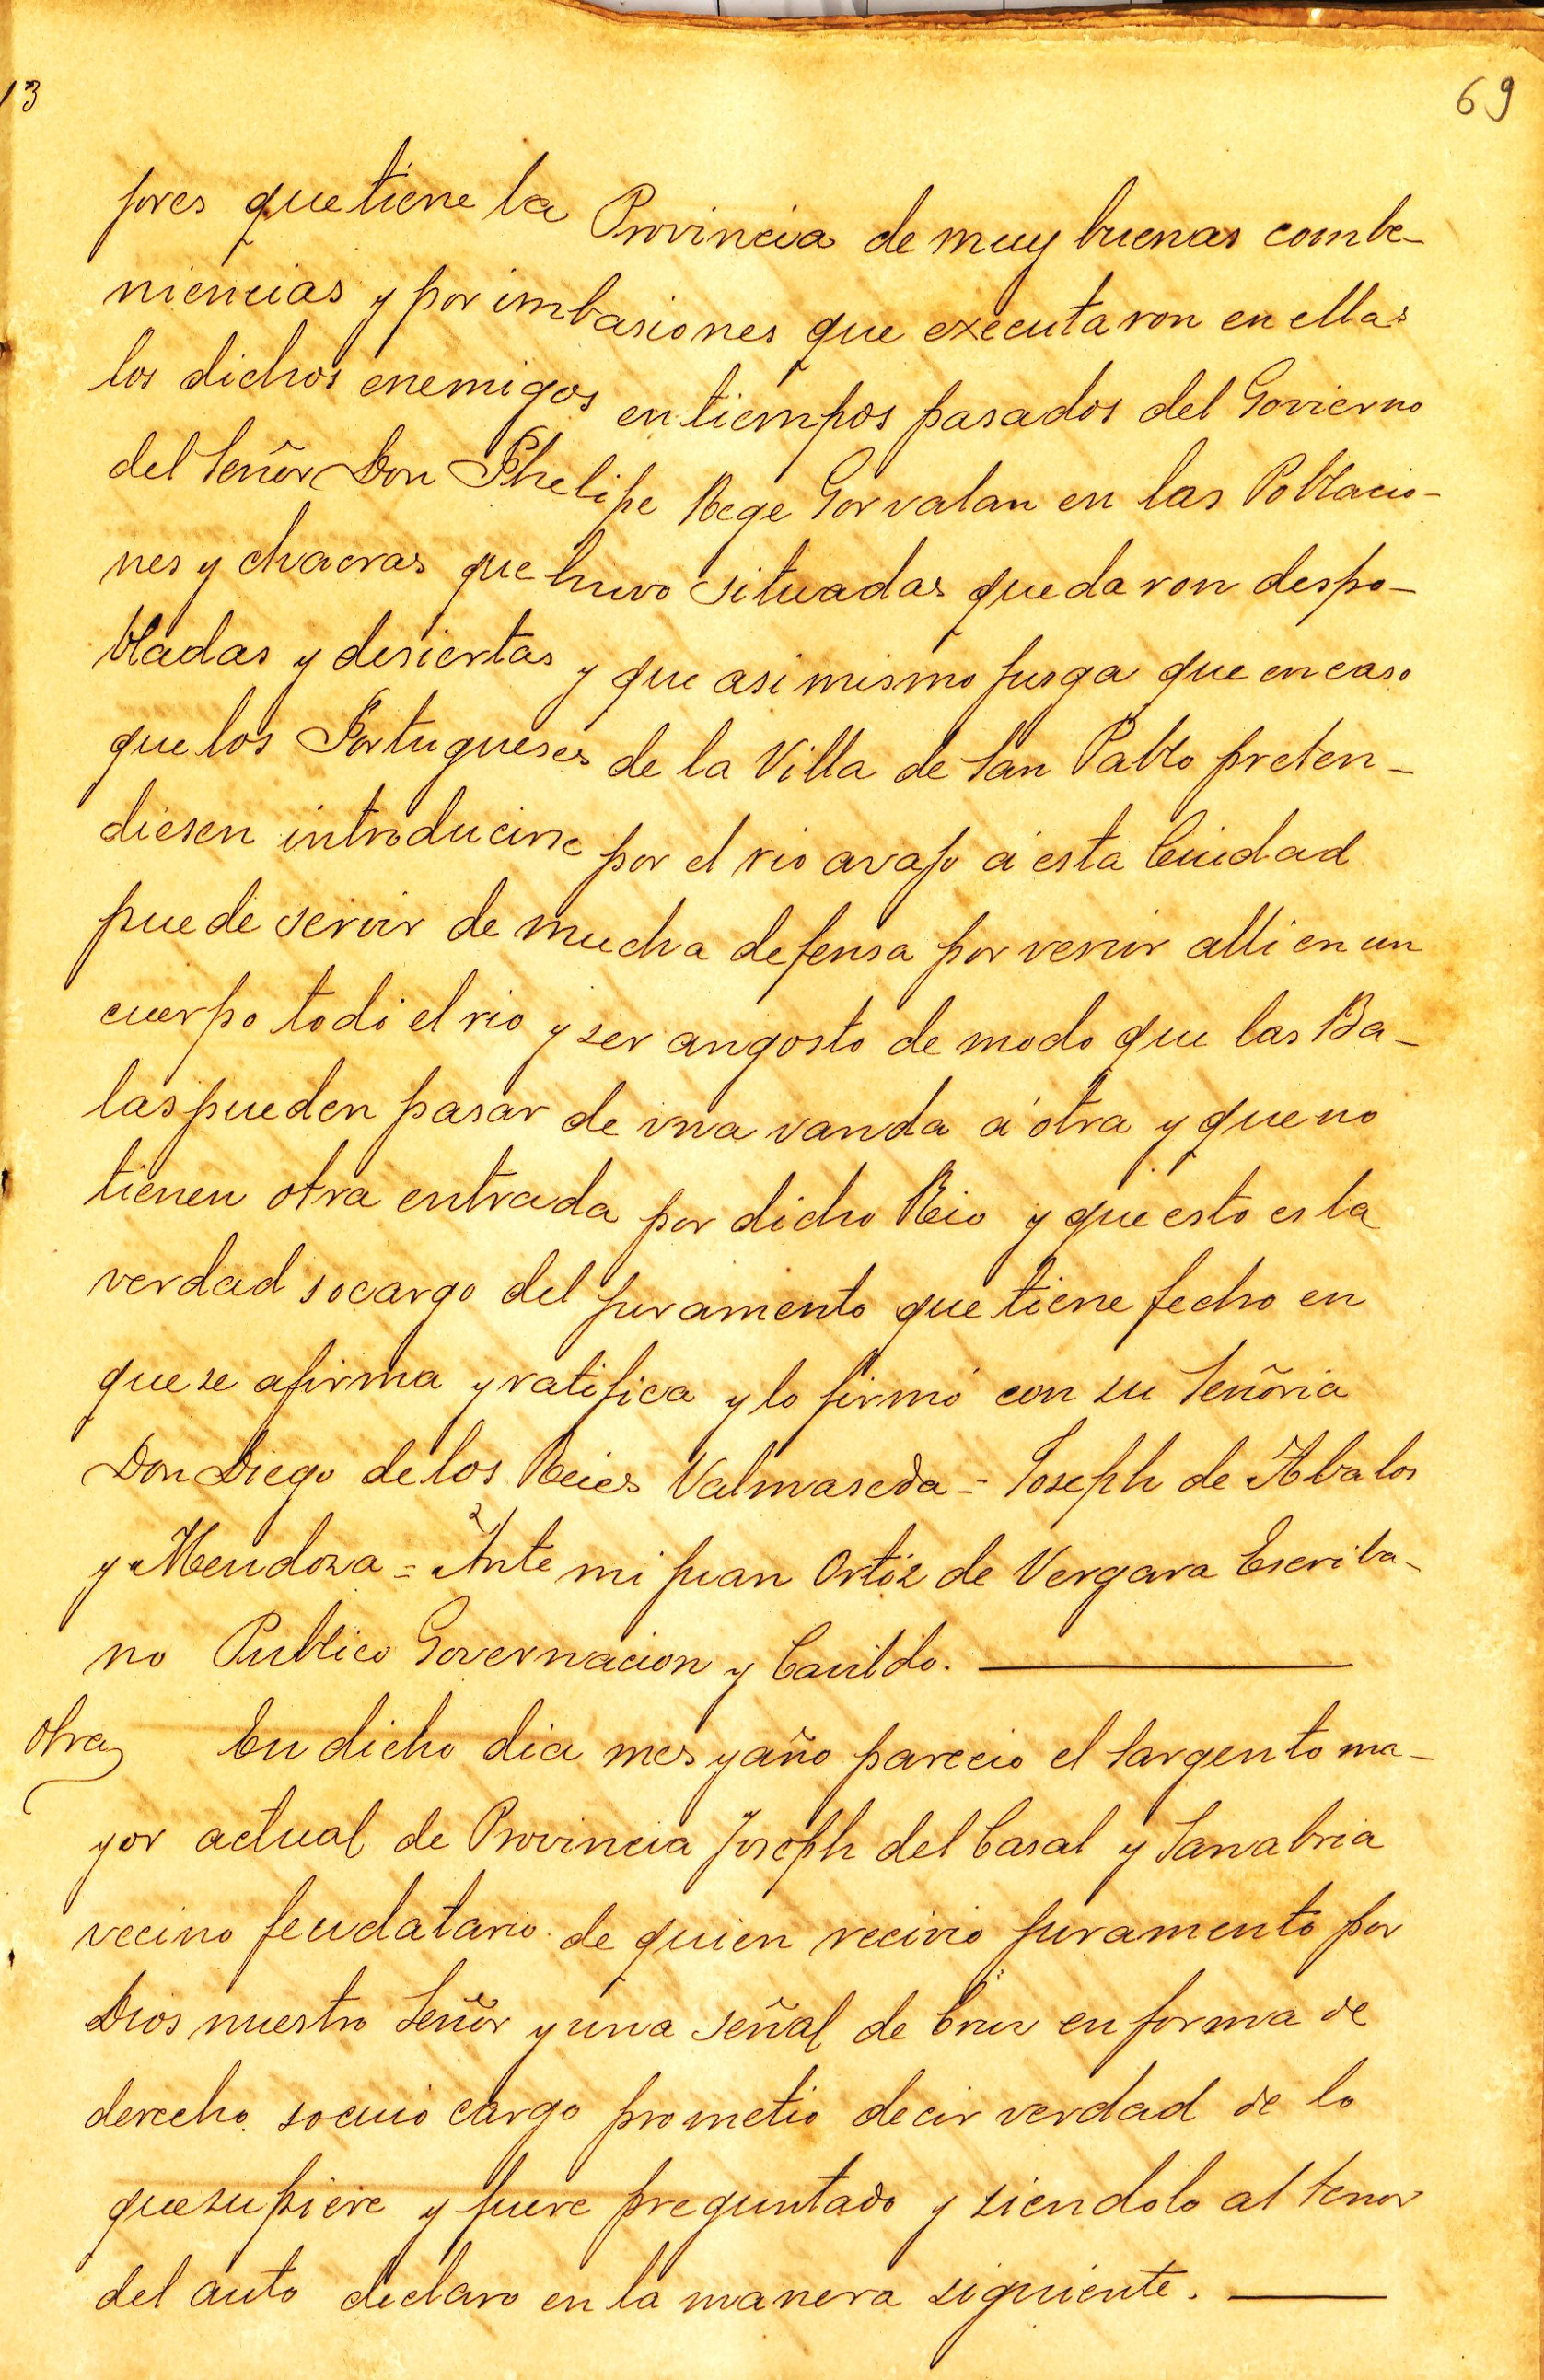 13
69
jores que tiene la Provincia de muy buenas combe-
niencias y por imbasiones que executaron en ellas
los dichos enemigos en tiempos pasados del Govierno
del Señor Don Phelipe Rege Gorvalan en las Poblacio-
nes y chacras que huvo situadas quedaron despo-
bladas y desiertas y que asi mismo jusga que en caso
que los Portugueses de la Villa de San Pablo preten-
diesen introducirse por el rio avajo á esta Ciudad
puede servir de mucha defensa por venir alli en un
cuerpo todo el rio y ser angosto de modo que las Ba-
las pueden pasar de vna vanda á otra y que no
tienen otra entrada por dicho Rio y que esto es la
verdad socargo del juramento que tiene fecho en
que se afirma y ratifica y lo firmó con su Señoria
Don Diego de los Reies Valmaseda = Joseph de Abalos
y Mendoza = Ante mi Juan Ortiz de Vergara Escriba-
no Publico Governacion y Cavildo.
Otra En dicho dia mes y año parecio el Sargento ma-
yor actual de Provincia Joseph del Casal y Sanabria
vecino feudatario de quien recivio juramento por
Dios nuestro Señor y una señal de Cruz en forma de
derecho socuio cargo prometio decir verdad de lo
que supiere y fuere preguntado y siendolo al tenor
del auto declaro en la manera siguiente.